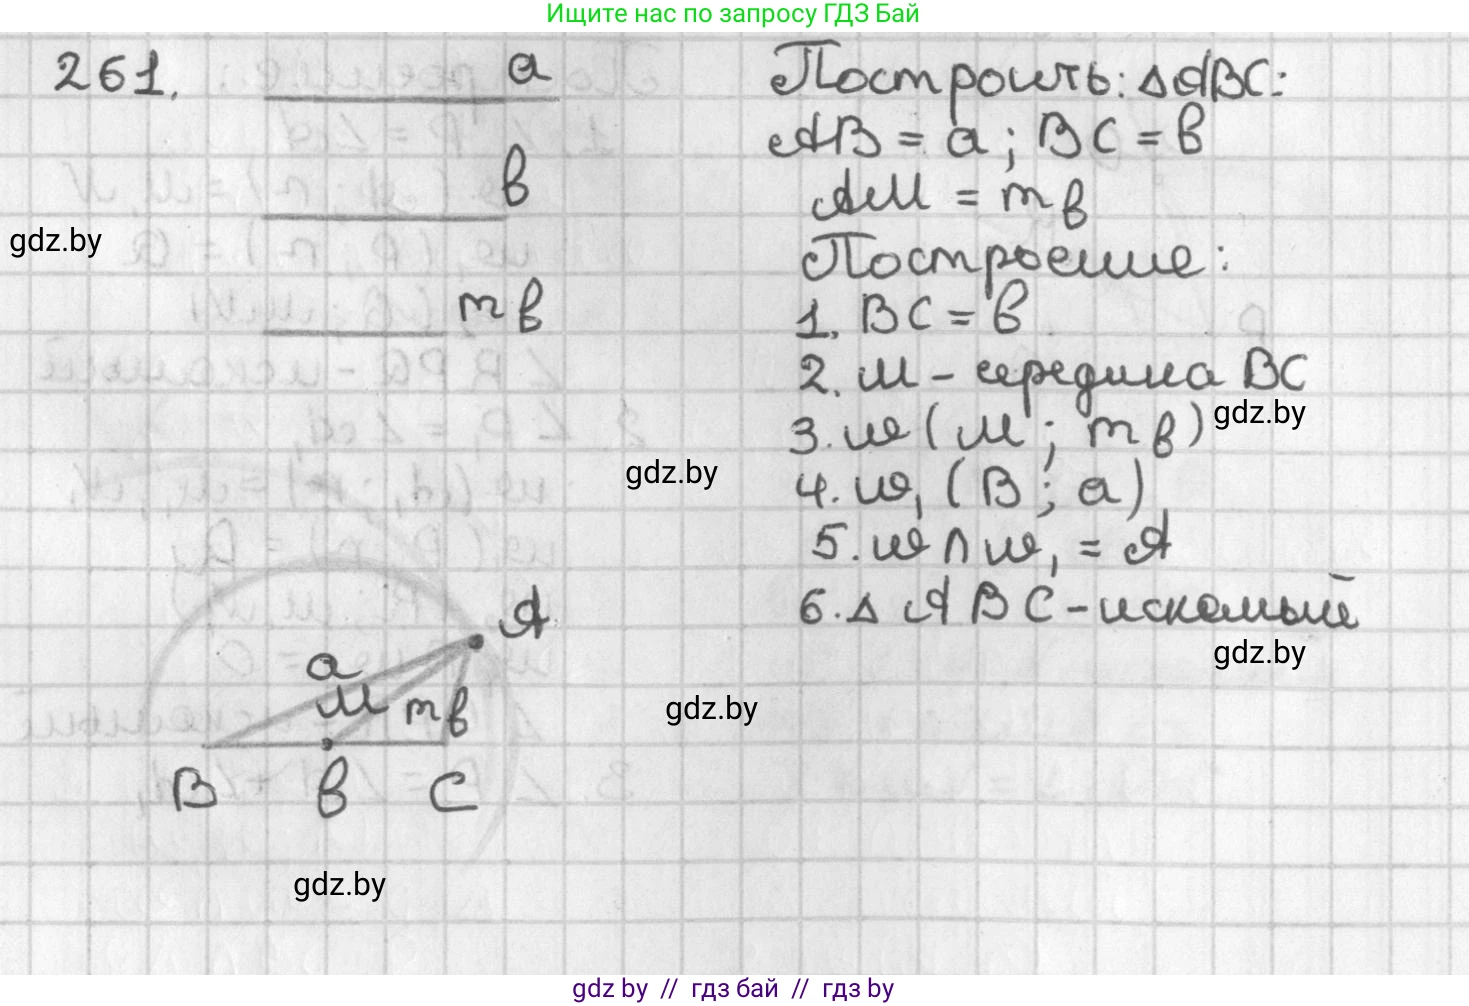 Ищите нас по запросу ГДЗ Бай
261.
a
в
gdz.by
mв
Построить: ΔABC:
AB = a; BC = в
AM = mв
Построение:
1. BC = в
2. M - середина BC
gdz.by
3. ω (M; mв)
gdz.by
4. ω₁ (B; a)
5. ω ∩ ω₁ = A
6. Δ ABC - искомый
gdz.by
A
a
M mв
gdz.by
B в C
gdz.by
gdz by // гдз бай // гдз by